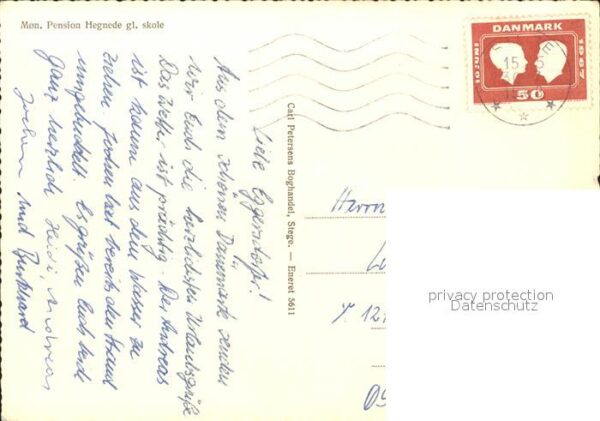 Møn. Pension Hegnede gl. skole
Liebe Eggersdorfs!
Aus dem schönen Dänemark senden
wir Euch die herzlichsten Urlaubsgrüße
Das Wetter ist prächtig. Der Andreas
ist kaum aus dem Wasser zu
ziehen. Jochen hat bereits den Strand
umgebuddelt. Es grüßen Euch beide
ganz herzlich Heidi, Andreas
Jochen und Burkhard
Carl Petersens Boghandel, Stege. — Eneret 5611
DANMARK
10·VI·1967
50
15
Herrn
privacy protection
Datenschutz